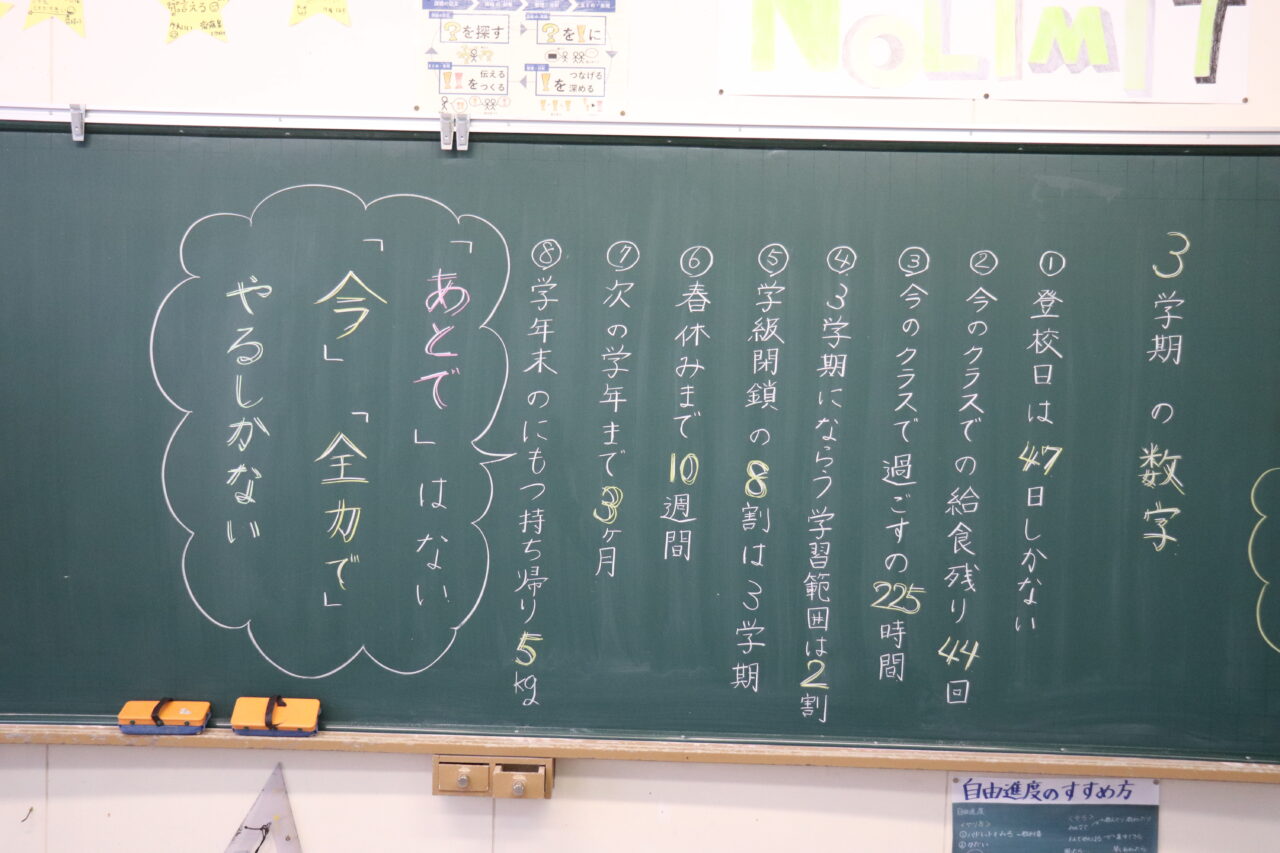 NO LIMIT
を探す
を に
を
伝える
つくる
を
つなげる
深める
3学期の数字
①登校日は47日しかない
②今のクラスでの給食残り44回
③今のクラスで過ごすの225時間
④3学期にならう学習範囲は2割
⑤学級閉鎖の8割は3学期
⑥春休みまで10週間
⑦次の学年まで3ヶ月
⑧学年末のにもつ持ち帰り5kg
「あとで」はない
「今」「全力で」
やるしかない
自由進度のすすめ方
自由進度